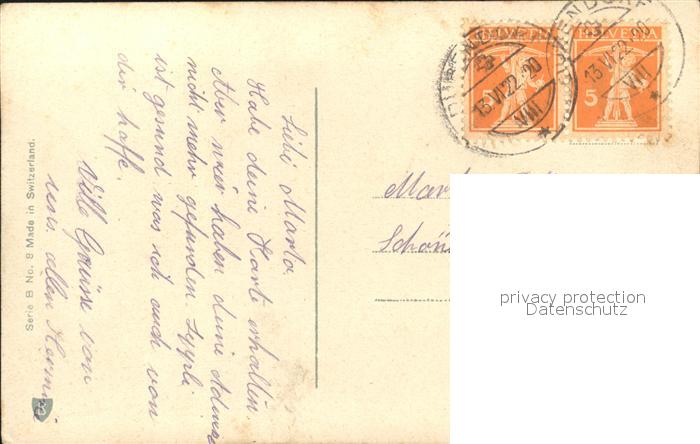 Liebi Marta.
Habe deine Karte erhalten.
Aber wier haben deine Adresse
nicht mehr gefunden.
ist gesund was ich auch von
dir hoffe.
Ville Grüsse von
uns allen
Serie B No. 8 Made in Switzerland.
HELVETIA
HELVETIA
5
5
13.VI.22.-20
13.VI.22.-20
VIII
VIII
privacy protection
Datenschutz